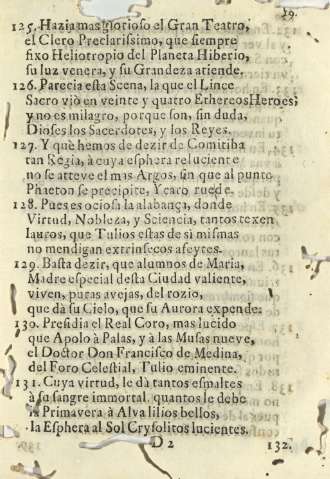 29.
125. Hazia mas glorioso el Gran Teatro,
el Clero Preclarissimo, que siempre
fixo Heliotropio del Planeta Hiberio,
su luz venera, y su Grandeza atiende.
126. Parecia esta Scena, la que el Lince
Sacro viò en veinte y quatro Ethereos Heroes;
y no es milagro, porque son, sin duda,
Dioses los Sacerdotes, y los Reyes.
127. Y què hemos de dezir de Comitiba
tan Regia, à cuya esphera reluciente
no se atreve el mas Argos, sin que al punto
Phaeton se precipite, Ycaro ruede.
128. Pues es ociosa la alabança, donde
Virtud, Nobleza, y Sciencia, tantos texen
lauros, que Tulios estas de si mismas
no mendigan extrinsecos afeytes.
129. Basta dezir, que alumnos de Maria,
Madre especial desta Ciudad valiente,
viven, puras avejas, del rozio,
que dà su Cielo, que su Aurora expende.
130. Presidia el Real Coro, mas lucido
que Apolo à Palas, y à las Musas nueve,
el Doctor Don Francisco de Medina,
del Foro Celestial, Tulio eminente.
131. Cuya virtud, le dà tantos esmaltes
à su sangre immortal, quantos le debe
la Primavera à Alva lilios bellos,
la Esphera al Sol Crysolitos lucientes.
D 2 132.